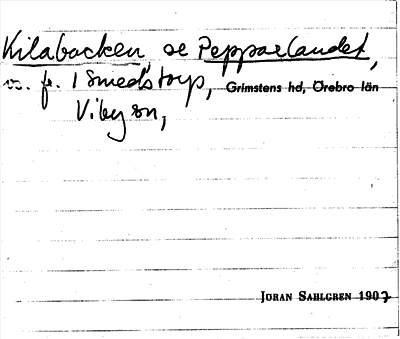 Kilabacken se Pepparlandet,
vs. fr. 1 Smedstorp, Grimstens hd, Örebro län
Viby sn,
JÖRAN SAHLGREN 1907